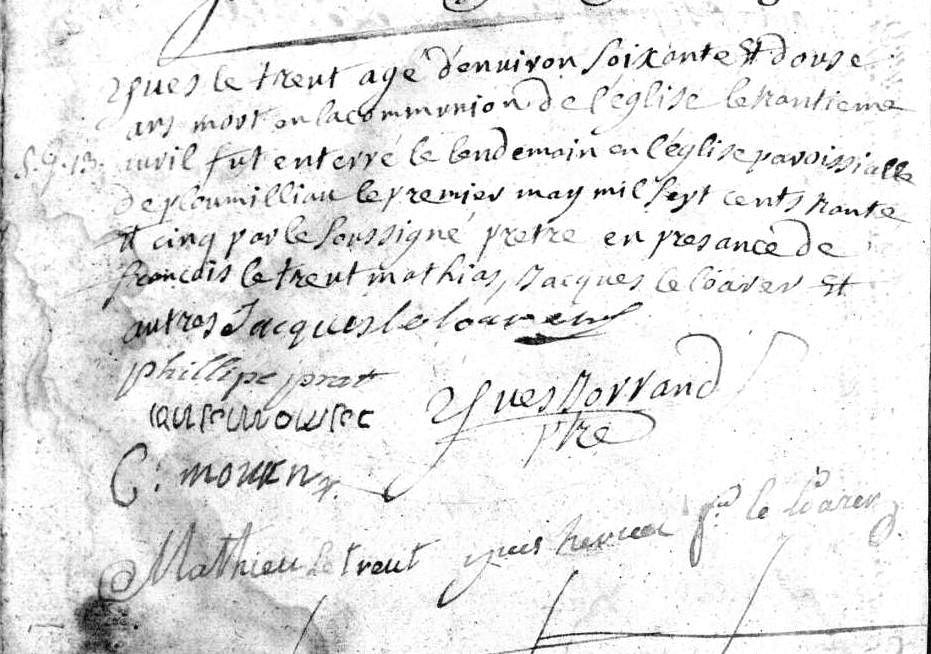 Yves le treut agé d'environ Soixante Et douse
ans mort en la communion de l'église le trantieme
S.g.13. avril fut enterré le lendemain en l'église paroissialle
de ploumilliau le premier may mil Sept cents trante
Et cinq par le Soussigné pretre en presance de
françois le treut mathias, Jacques le loarer Et
autres Jacques le loarer
phillipe prat
Yves Dorrand
ptre
C: mouren
Mathieu le treut yves le loarer